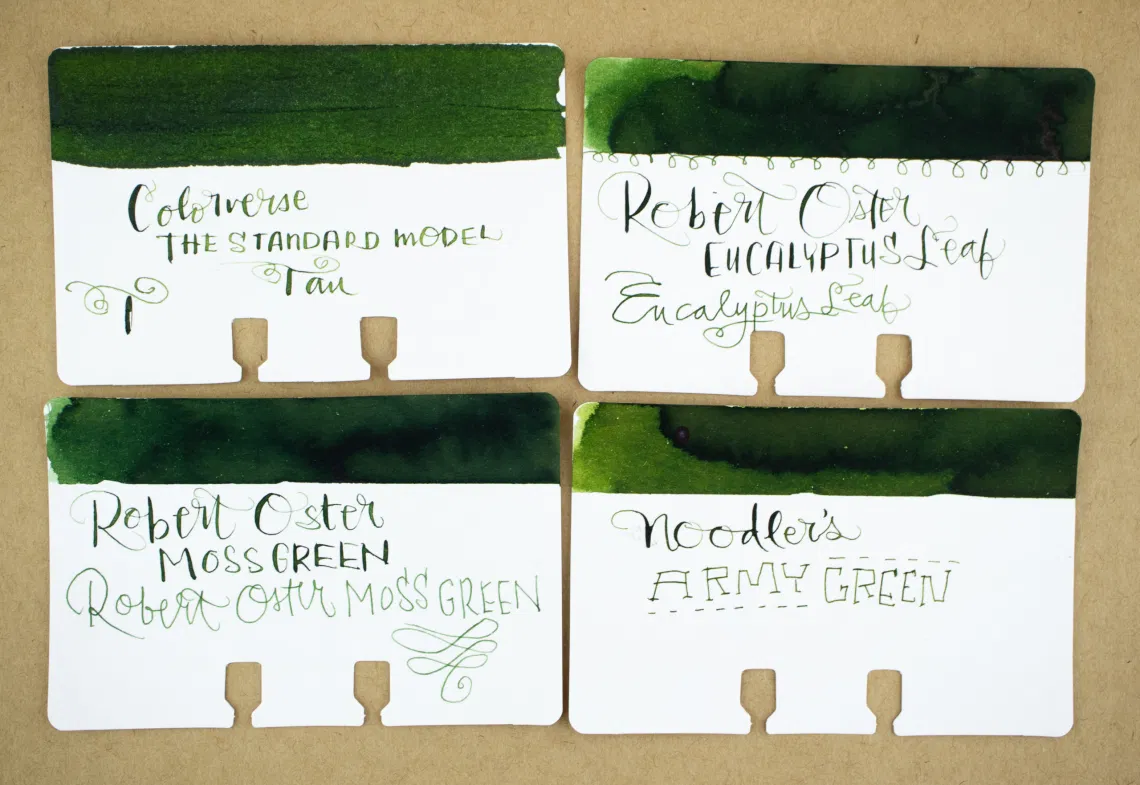 Colorverse
THE STANDARD MODEL
Tau
T
Robert Oster
EUCALYPTUS Leaf
Eucalyptus Leaf
Robert Oster
MOSS GREEN
Robert Oster MOSS GREEN
Noodler's
ARMY GREEN